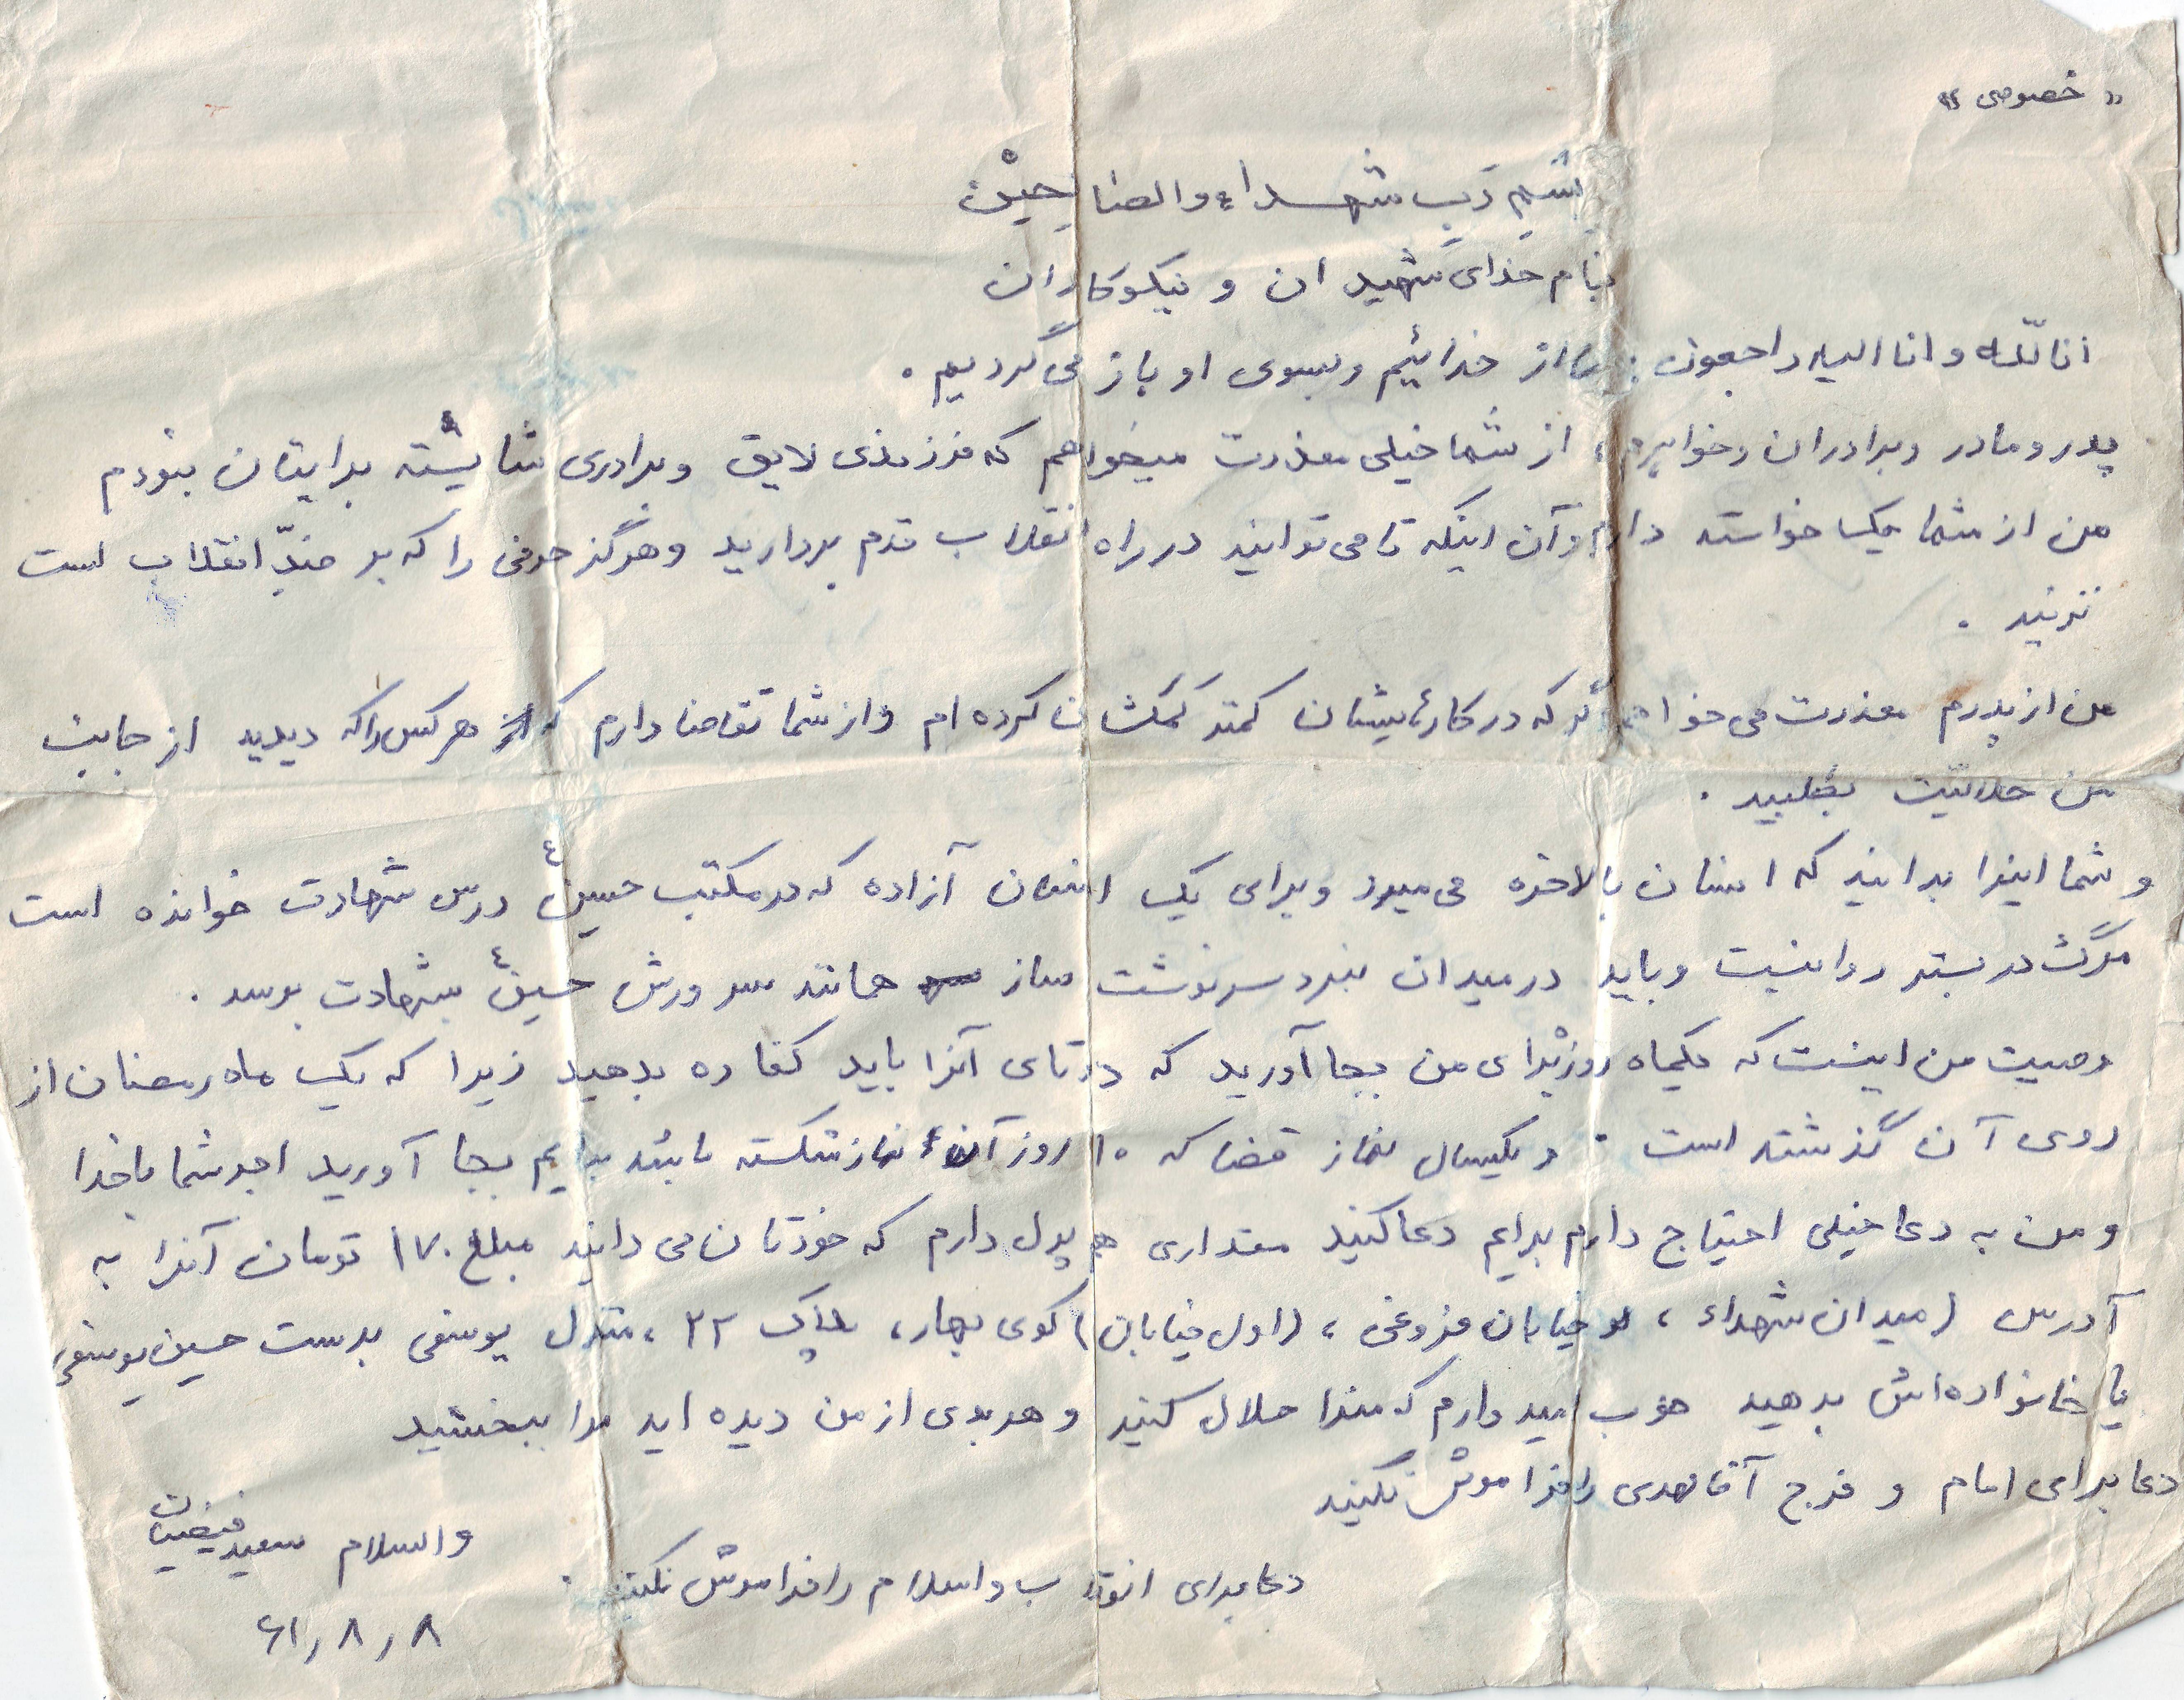 «خصوصی»
بِسْمِ رَبِ شهداء والصالِحیْن
بنام خدای شهیدان و نیکوکاران
انا لله و انا الیه راجعون : ما از خدائیم و بسوی او باز می گردیم .
پدر و مادر و برادران و خواهرم ، از شما خیلی معذرت میخواهم که فرزندی لایق و برادری شایسته برایتان نبودم
من از شما یک خواسته دارم و آن اینکه تا می توانید در راه انقلاب قدم بردارید و هرگز حرفی را که بر ضدّ انقلاب است
نزنید .
من از پدرم معذرت می خواهم که در کارهایشان کمتر کمکشان کرده ام و از شما تقاضا دارم که هر کس را که دیدید از جانب
من حلالیّت بطلبید .
و شما اینرا بدانید که انسان بالاخره می میرد و برای یک انسان آزاده که در مکتب حسین ع درس شهادت خوانده است
مرگ در بستر روا نیست و باید در میدان نبرد سرنوشت ساز همانند سرورش حسین ع بشهادت برسد .
وصیت من اینست که یکماه روزه برای من بجا آورید که تای آنرا باید کفاره بدهید زیرا که یک ماه رمضان از
روی آن گذشته است . و یکسال نماز قضا که ۱۰ روز آن نماز شکسته باشد برایم بجا آورید اجر شما با خدا
و من به دعا خیلی احتیاج دارم برایم دعا کنید مقداری هم پول دارم که خودتان می دانید مبلغ ۱۷۰ تومان آنرا به
آدرس (میدان شهداء ، خیابان فروغی ، (اول خیابان) کوی بهار ، پلاک ۲۲ ، منزل یوسفی بدست حسین یوسفی
یا خانواده اش بدهید خوب امیدوارم که مرا حلال کنید و هر بدی از من دیده اید مرا ببخشید
دعا برای امام و فرج آقا مهدی را فراموش نکنید
دعا برای انقلاب و اسلام را فراموش نکنید .
والسلام سعید فیضیان
۶۱٫۸٫۸